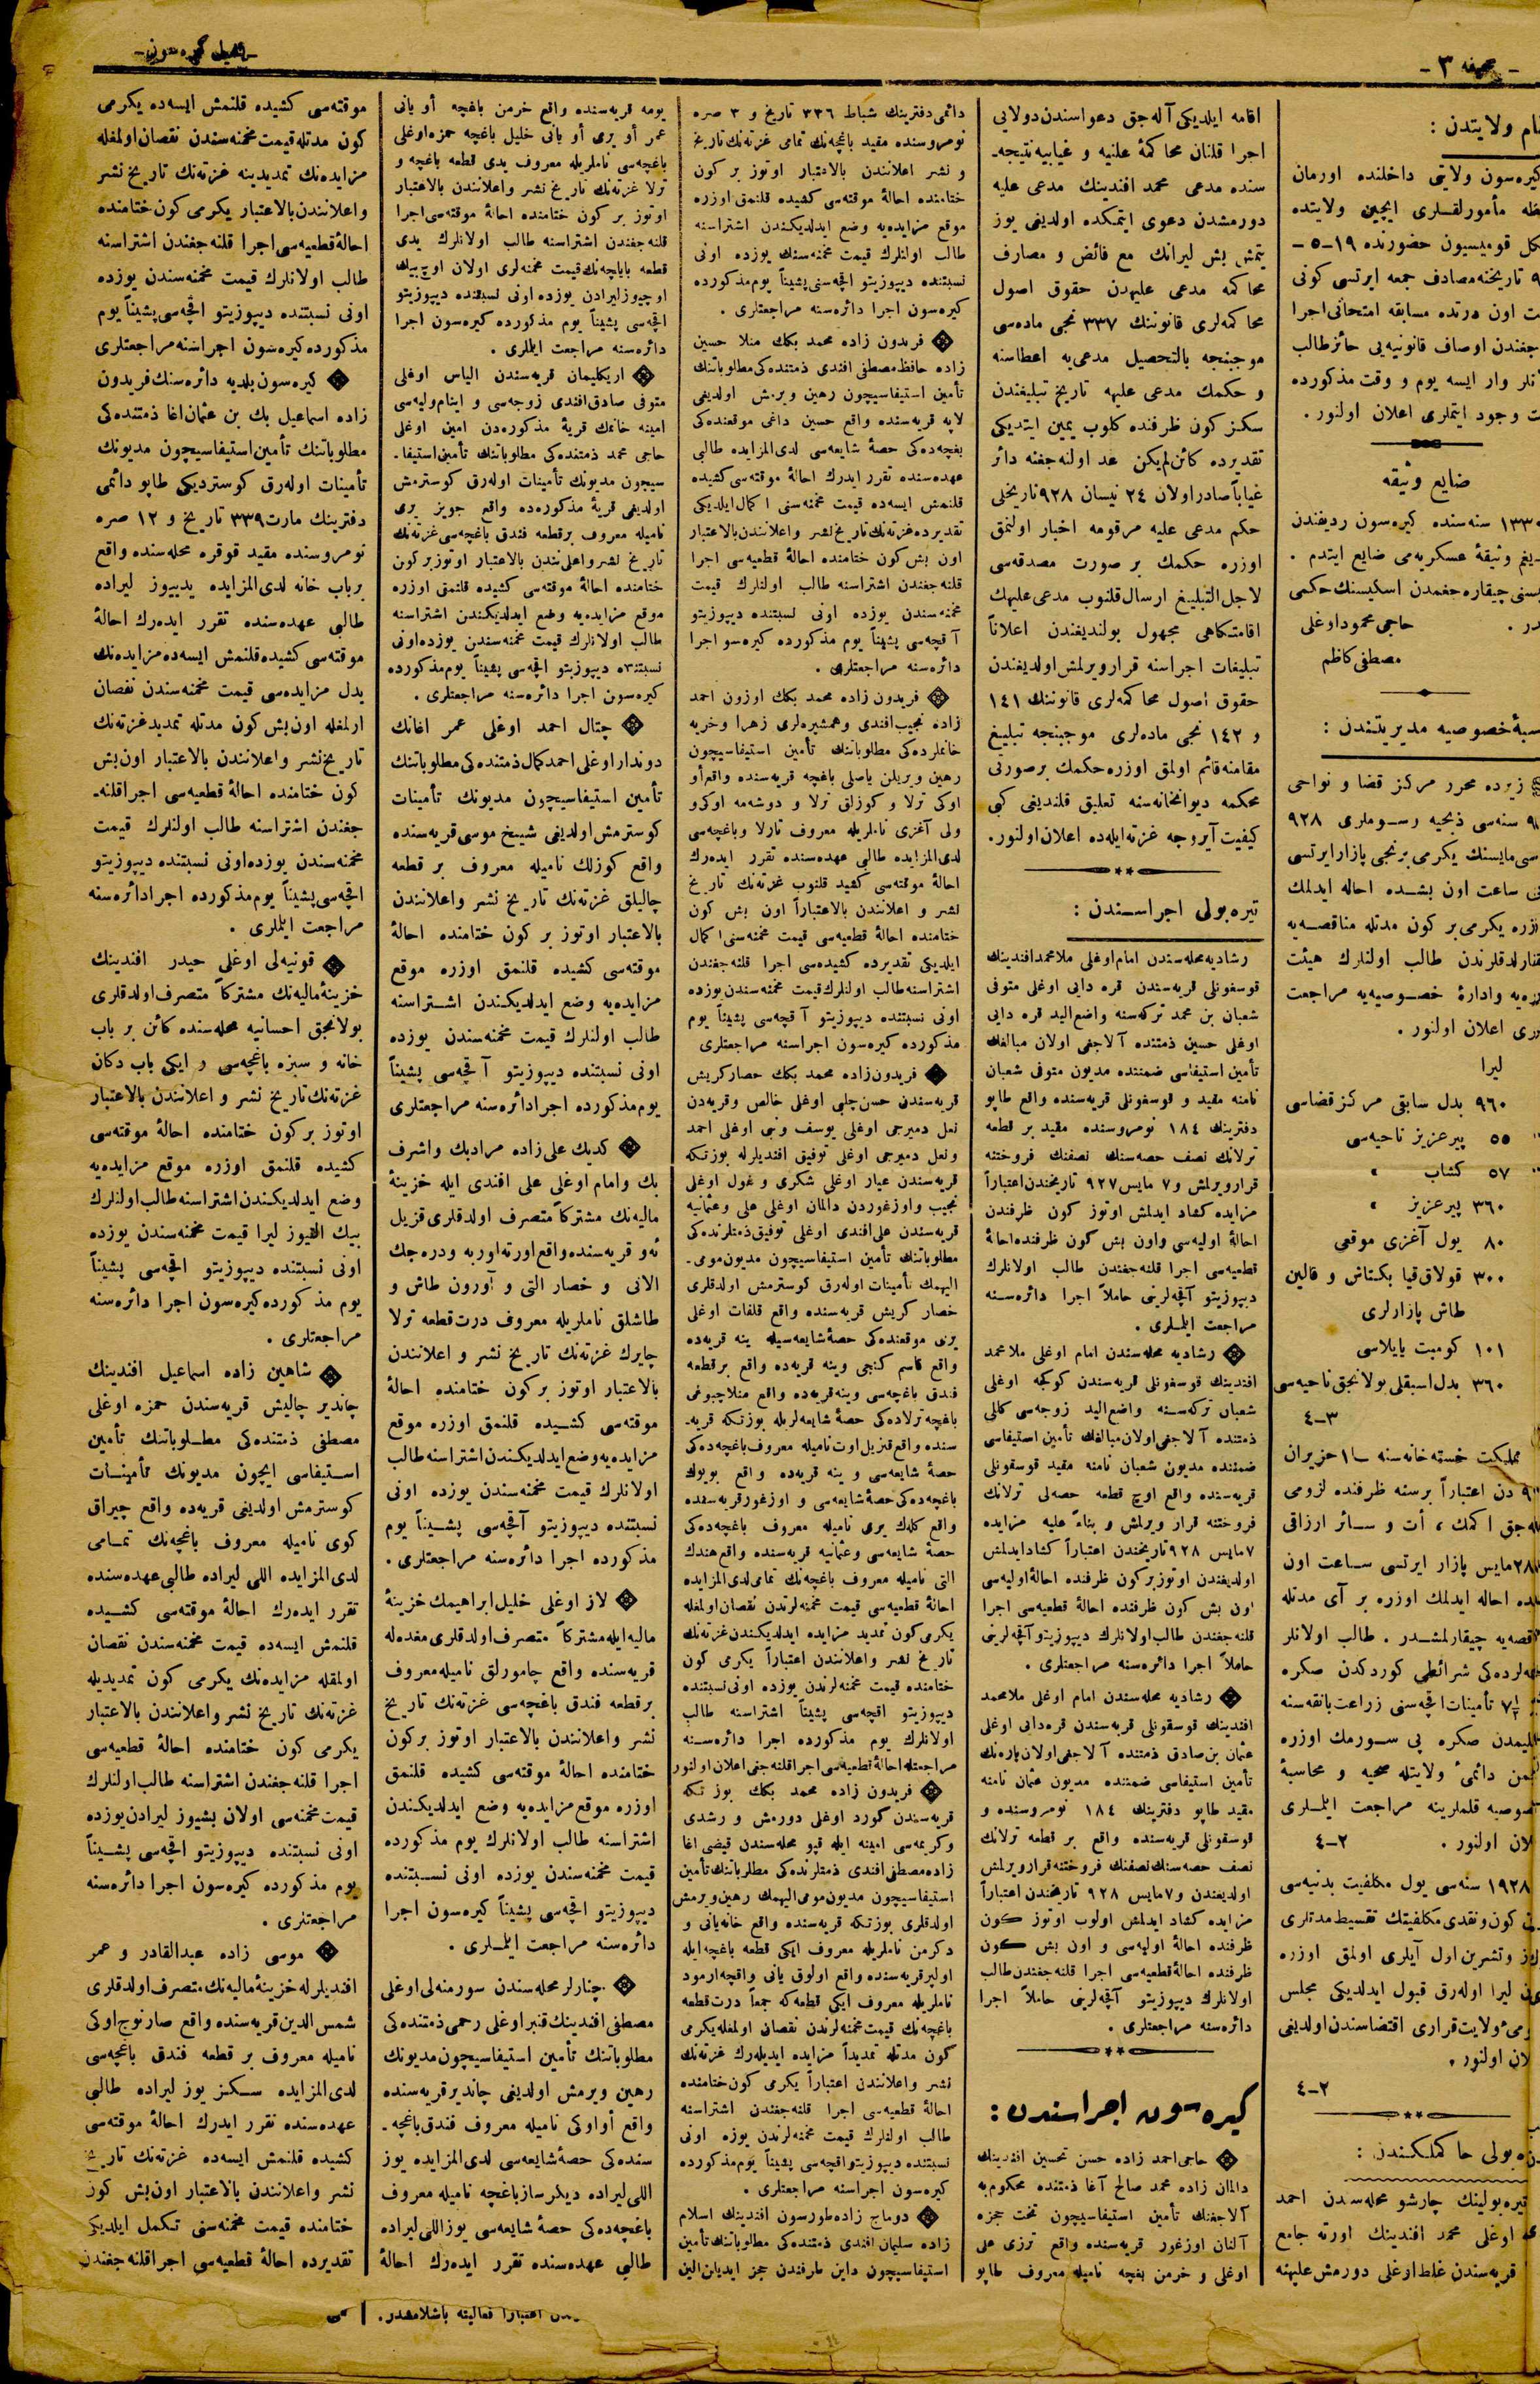 - صحیفه ٣ -
- یشیل كیره‌سون -
ولایتدن :
كیره‌سون ولایتی داخلنده اورمان
مأمورلقلری ایچین ولایتده
قومیسیون حضورنده ١٩-٥-
تاریخنه مصادف جمعه ایرتسی كونی
اون درتده مسابقه امتحانی اجرا
جغندن اوصاف قانونیه‌یی حائز طالب
وار ایسه یوم و وقت مذكورده
وجود ایتملری اعلان اولنور .
ضایع وثیقه
سنه‌سنده كیره‌سون ردیفندن
وثیقهٔ عسكریه‌می ضایع ایتدم .
چیقاره‌جغمدن اسكیسنك حكمی
حاجی محمود اوغلی
مصطفی كاظم
خصوصیه مدیریتندن :
زیرده محرر مركز قضا و نواحی
سنه‌سی ذبحیه رسوملری ٩٢٨
مایسنك یكرمی برنجی پازار ایرتسی
ساعت اون بشده احاله ایدلمك
یكرمی بر كون مدتله مناقصه‌یه
طالب اولنلرك هیئت
وادارهٔ خصوصیه‌یه مراجعت
اعلان اولنور .
لیرا
٩٦٠ بدل سابقی مركز قضاسی
٥٥ پیرعزیز ناحیه‌سی
٥٧ كشاب »
٣٦٠ پیرعزیز »
٨٠ یول آغزی موقعی
٣٠٠ قولاق‌قیا بكتاش و قالین
طاش پازارلری
١٠١ كومبت یایلاسی
٣٦٠ بدل اسبقلی بولانجق ناحیه‌سی
٣-٤
مملكت خسته‌خانه‌سنه ١ حزیران
دن اعتباراً برسنه ظرفنده لزومی
اكمك ، أت و سائر ارزاقی
٢٨ مایس پازار ایرتسی ساعت اون
احاله ایدلمك اوزره بر آی مدتله
چیقارلمشدر . طالب اولانلر
شرائطی كوردكدن صكره
تأمینات اقچه‌سنی زراعت بانقه‌سنه
صكره پی سورمك اوزره
دائمیٔ ولایتله صحیه و محاسبهٔ
قلملرینه مراجعت ایلملری
اولنور . ٢-٤
١٩٢٨ سنه‌سی یول مكلفیت بدنیه‌سی
كون ونقدی مكلفیتك تقسیط مدتلری
وتشرین اول آیلری اولمق اوزره
لیرا اوله‌رق قبول ایدلدیكی مجلس
ولایت قراری اقتضاسندن اولدیغی
اولنور .
٢-٤
حاكملكندن :
تیره‌بولینك چارشو محله‌سندن احمد
اوغلی محمد افندینك اورته جامع
قریه‌سندن غلط اوغلی دورمش علیهنه
اقامه ایلدیكی آله‌جق دعواسندن دولایی
اجرا قلنان محاكمهٔ علنیه و غیابیه نتیجه‌ـ
سنده مدعی محمد افندینك مدعی علیه
دورمشدن دعوی ایتمكده اولدیغی یوز
یتمش بش لیرانك مع فائض و مصارف
محاكمه مدعی علیهدن حقوق اصول
محاكمه‌لری قانوننك ٣٣٧ نجی ماده‌سی
موجبنجه بالتحصیل مدعی‌یه اعطاسنه
و حكمك مدعی علیهه تاریخ تبلیغندن
سكز كون ظرفنده كلوب یمین ایتدیكی
تقدیرده كائن لم یكن عد اوله‌جغنه دائر
غیاباً صادر اولان ٢٤ نیسان ٩٢٨ تاریخلی
حكم مدعی علیه مرقومه اخبار اولنمق
اوزره حكمك بر صورت مصدقه‌سی
لاجل التبلیغ ارسال قلنوب مدعی علیهك
اقامتكاهی مجهول بولندیغندن اعلاناً
تبلیغات اجراسنه قرار ویرلمش اولدیغندن
حقوق اصول محاكمه‌لری قانوننك ١٤١
و ١٤٢ نجی ماده‌لری موجبنجه تبلیغ
مقامنه قائم اولمق اوزره حكمك بر صورتی
محكمه دیوانخانه‌سنه تعلیق قلندیغی كبی
كیفیت آیروجه غزته ایله‌ده اعلان اولنور.
تیره‌بولی اجراسندن :
رشادیه محله‌سندن امام اوغلی ملا محمد افندینك
قوسغونلی قریه‌سندن قره دایی اوغلی متوفی
شعبان بن محمد تركه‌سنه واضع الید قره دایی
اوغلی حسین ذمتنده آلاجغی اولان مبالغك
تأمین استیفاسی ضمننده مدیون متوفی شعبان
نامنه مقید و قوسغونلی قریه‌سنده واقع طاپو
دفترینك ١٨٤ نومروسنده مقید بر قطعه
ترلانك نصف حصه‌سنك نصفنك فروختنه
قرار ویرلمش و ٧ مایس ٩٢٧ تاریخندن اعتباراً
مزایده كشاد ایدلمش اوتوز كون ظرفندن
احالهٔ اولیه‌سی واون بش كون ظرفنده احالهٔ
قطعیه‌سی اجرا قلنه‌جغندن طالب اولانلرك
دیپوزیتو آقچه‌لرینی حاملاً اجرا دائره‌سنه
مراجعت ایلملری .
رشادیه محله‌سندن امام اوغلی ملا محمد
افندینك قوسغونلی قریه‌سندن كوكجه اوغلی
شعبان تركه‌سنه واضع الید زوجه‌سی كاملی
ذمتنده آلاجغی اولان مبالغك تأمین استیفاسی
ضمننده مدیون شعبان نامنه مقید قوسغونلی
قریه‌سنده واقع اوچ قطعه حصه‌لی ترلانك
فروختنه قرار ویرلمش و بناءً علیه مزایده
٧ مایس ٩٢٨ تاریخندن اعتباراً كشاد ایدلمش
اولدیغندن اوتوز بر كون ظرفنده احالهٔ اولیه‌سی
اون بش كون ظرفنده احالهٔ قطعیه‌سی اجرا
قلنه‌جغندن طالب اولانلرك دیپوزیتو آقچه‌لرینی
حاملاً اجرا دائره‌سنه مراجعتلری .
رشادیه محله‌سندن امام اوغلی ملا محمد
افندینك قوسقونلی قریه‌سندن قره‌دایی اوغلی
عثمان بن صادق ذمتنده آلاجغی اولان پاره‌نك
تأمین استیفاسی ضمننده مدیون عثمان نامنه
مقید طاپو دفترینك ١٨٤ نومروسنده و
قوسغونلی قریه‌سنده واقع بر قطعه ترلانك
نصف حصه‌سنك نصفنك فروختنه قرار ویرلمش
اولدیغندن و ٧ مایس ٩٢٨ تاریخندن اعتباراً
مزایده كشاد ایدلمش اولوب اوتوز كون
ظرفنده احالهٔ اولیه‌سی و اون بش كون
ظرفنده احالهٔ قطعیه‌سی اجرا قلنه‌جغندن طالب
اولانلرك دیپوزیتو آقچه‌لرینی حاملاً اجرا
دائره‌سنه مراجعتلری .
كیره‌سون اجراسندن :
حاجی احمد زاده حسن تحسین افندینك
دالمان زاده محمد صالح آغا ذمتنده محكوم‌به
آلاجغنك تأمین استیفاسیچون تحت حجزه
آلنان اوزغور قریه‌سنده واقع ترزی علی
اوغلی و خرمن بغچه نامیله معروف طاپو
دائمی دفترینك شباط ٣٣٦ تاریخ و ٣ صره
نومروسنده مقید باغچه‌نك تمامی غزته‌نك تاریخ
و نشر اعلانندن بالاعتبار اوتوز بر كون
ختامنده احالهٔ موقته‌سی كشیده قلنمق اوزره
موقع مزایده‌یه وضع ایدلدیكندن اشتراسنه
طالب اولنلرك قیمت مخمنه‌سنك یوزده اونی
نسبتنده دیپوزیتو اقچه‌سنی پشیناً یوم مذكورده
كیره‌سون اجرا دائره‌سنه مراجعتلری .
فریدون زاده محمد بكك منلا حسین
زاده حافظ مصطفی افندی ذمتنده‌كی مطلوباتنك
تأمین استیفاسیچون رهین ویرمش اولدیغی
لاپه قریه‌سنده واقع حسین داغی موقعنده‌كی
بغچه‌ده‌كی حصهٔ شایعه‌سی لدی المزایده طالبی
عهده‌سنده تقرر ایدرك احالهٔ موقته‌سی كشیده
قلنمش ایسه‌ده قیمت مخمنه‌سنی اكمال ایلدیكی
تقدیرده غزته‌نك تاریخ نشر واعلانندن بالاعتبار
اون بش كون ختامنده احالهٔ قطعیه‌سی اجرا
قلنه‌جغندن اشتراسنه طالب اولنلرك قیمت
مخمنه‌سندن یوزده اونی نسبتنده دیپوزیتو
آقچه‌سی پشیناً یوم مذكورده كیره‌سو اجرا
دائره‌سنه مراجعتلری .
فریدون زاده محمد بكك اوزون احمد
زاده نجیب افندی وهمشیره‌لری زهرا وخریه
خانملرده‌كی مطلوباتنك تأمین استیفاسیچون
رهین ویریلن یاصلی باغچه قریه‌سنده واقع أو
اوكی ترلا و كوزلق ترلا و دوشه‌مه اوكی و
ولی آغزی ناملریله معروف تارلا وباغچه‌سی
لدی المزایده طالبی عهده‌سنده تقرر ایدرك
احالهٔ موقته‌سی كشید قلنوب غزته‌نك تاریخ
نشر و اعلانندن بالاعتباراً اون بش كون
ختامنده احالهٔ قطعیه‌سی قیمت مخمنه‌سنی اكمال
ایلدیكی تقدیرده كشیده‌سی اجرا قلنه‌جغندن
اشتراسنه طالب اولنلرك قیمت مخمنه‌سندن یوزده
اونی نسبتنده دیپوزیتو آقچه‌سی پشیناً یوم
مذكورده كیره‌سون اجراسنه مراجعتلری
فریدون زاده محمد بكك حصار كریش
قریه‌سندن حسن چلبی اوغلی خالص وقریه‌دن
نعل دمیرجی اوغلی یوسف ونبی اوغلی احمد
ونعل دمیرجی اوغلی توفیق افندیلرله بوزتكه
قریه‌سندن عیار اوغلی شكری و غول اوغلی
نجیب واوزغوردن دالمان اوغلی علی وعثمانیه
قریه‌سندن علی افندی اوغلی توفیق ذمتلرنده‌كی
مطلوباتنك تأمین استیفاسیچون مدیون مومی‌ـ
الیهمك تأمینات اوله‌رق كوسترمش اولدقلری
حصار كریش قریه‌سنده واقع قلفات اوغلی
یری موقعنده‌كی حصهٔ شایعه‌سیله ینه قریه‌ده
واقع قاسم كنجی وینه قریه‌ده واقع برقطعه
فندق باغچه‌سی وینه قریه‌ده واقع منلاچبوغی
باغچه ترلاده‌كی حصهٔ شایعه‌لریله بوزتكه قریه‌ـ
سنده واقع قنزیل اوت نامیله معروف باغچه‌ده‌كی
حصهٔ شایعه‌سی و ینه قریه‌ده واقع بویوك
باغچه‌ده‌كی حصهٔ شایعه‌سی و اوزغور قریه‌سنده
واقع كلك یری نامیله معروف باغچه‌ده‌كی
حصهٔ شایعه‌سی وعثمانیه قریه‌سنده واقع هندك
التی نامیله معروف باغچه‌نك تمامی لدی المزایده
احالهٔ قطعیه‌سی قیمت مخمنه‌لرندن نقصان اولمغله
یكرمی كون تمدید مزایده ایدلدیكندن غزته‌نك
تاریخ نشر واعلانندن اعتباراً یكرمی كون
ختامنده قیمت مخمنه‌لرندن یوزده اونی نسبتنده
دیپوزیتو اقچه‌سی پشیناً اشتراسنه طالب
اولانلرك یوم مذكورده اجرا دائره‌سنه
مراجعتله احالهٔ قطعیه‌سی اجرا قلنه‌جغی اعلان اولنور
فریدون زاده محمد بكك بوز تكه
قریه‌سندن كورد اوغلی دورمش و رشدی
وكریمه‌سی امینه ایله قپو محله‌سندن قیضی اغا
زاده مصطفی افندی ذمتلرنده‌كی مطلوباتنك تأمین
استیفاسیچون مدیون مومی الیهمك رهین ویرمش
اولدقلری بوزتكه قریه‌سنده واقع خانه یانی و
دكرمن ناملریله معروف ایكی قطعه باغچه ایله
اولپر قریه‌سنده واقع اولوق یانی واقچه ارمود
ناملریله معروف ایكی قطعه‌كه جمعاً درت قطعه
باغچه‌نك قیمت مخمنه‌لرندن نقصان اولمغله یكرمی
كون مدتله تمدیداً مزایده ایدیله‌رك غزته‌نك
نشر واعلانندن اعتباراً یكرمی كون ختامنده
احالهٔ قطعیه‌سی اجرا قلنه‌جغندن اشتراسنه
طالب اولنلرك قیمت مخمنه‌لرندن یوزه اونی
نسبتنده دیپوزیتو اقچه‌سی پشیناً یوم مذكورده
كیره‌سون اجراسنه مراجعتلری .
دوماج زاده طورسون افندینك اسلام
زاده سلیمان افندی ذمتنده‌كی مطلوباتنك تأمین
استیفاسیچون داین طرفندن حجز ایدیلن الین
یومه قریه‌سنده واقع خرمن باغچه أو یانی
عمر أو یری أو یانی خلیل باغچه حمزه اوغلی
باغچه‌سی ناملریله معروف یدی قطعه باغچه و
ترلا غزته‌نك تاریخ نشر واعلانندن بالاعتبار
اوتوز بر كون ختامنده احالهٔ موقته‌سی اجرا
قلنه‌جغندن اشتراسنه طالب اولانلرك یدی
قطعه باباچه‌نك قیمت مخمنه‌لری اولان اوچ بیك
اوچیوز لیرادن یوزده اونی نسبتنده دیپوزیتو
اقچه‌سی پشیناً یوم مذكورده كیره‌سون اجرا
دائره‌سنه مراجعت ایلملری .
اریكلیمان قریه‌سندن الیاس اوغلی
متوفی صادق افندی زوجه‌سی و ایتام ولیه‌سی
امینه خانمك قریهٔ مذكوره‌دن امین اوغلی
حاجی محمد ذمتنده‌كی مطلوباتنك تأمین استیفاـ
سیچون مدیونك تأمینات اوله‌رق كوسترمش
اولدیغی قریهٔ مذكوره‌ده واقع جویز یری
نامیله معروف برقطعه فندق باغچه‌سی غزته‌نك
تاریخ نشر واعلانندن بالاعتبار اوتوز بر كون
ختامنده احالهٔ موقته‌سی كشیده قلنمق اوزره
موقع مزایده‌یه وضع ایدلدیكندن اشتراسنه
طالب اولانلرك قیمت مخمنه‌سندن یوزده اونی
نسبتنده دیپوزیتو اقچه‌سی پشیناً یوم مذكورده
كیره‌سون اجرا دائره‌سنه مراجعتلری .
چتال احمد اوغلی عمر اغانك
دوندار اوغلی احمد كمال ذمتنده‌كی مطلوباتنك
تأمین استیفاسیچون مدیونك تأمینات
كوسترمش اولدیغی شیخ موسی قریه‌سنده
واقع كوزلك نامیله معروف بر قطعه
چالیلق غزته‌نك تاریخ نشر واعلانندن
بالاعتبار اوتوز بر كون ختامنده احالهٔ
موقته‌سی كشیده قلنمق اوزره موقع
مزایده‌یه وضع ایدلدیكندن اشتراسنه
طالب اولنلرك قیمت مخمنه‌سندن یوزده
اونی نسبتنده دیپوزیتو آقچه‌سی پشیناً
یوم مذكورده اجرا دائره‌سنه مراجعتلری
كدیك علی زاده مرادبك واشرف
بك وامام اوغلی علی افندی ایله خزینهٔ
مالیه‌نك مشتركاً متصرف اولدقلری قزیل
ئه‌و قریه‌سنده واقع اورته اوربه ودره‌جك
الانی و خصار التی و آورون طاش و
طاشلق ناملریله معروف درت قطعه ترلا
چایرك غزته‌نك تاریخ نشر و اعلانندن
بالاعتبار اوتوز بر كون ختامنده احالهٔ
موقته‌سی كشیده قلنمق اوزره موقع
مزایده‌یه وضع ایدلدیكندن اشتراسنه طالب
اولانلرك قیمت مخمنه‌سندن یوزده اونی
نسبتنده دیپوزیتو آقچه‌سی پشیناً یوم
مذكورده اجرا دائره‌سنه مراجعتلری .
لاز اوغلی خلیل ابراهیمك خزینهٔ
مالیه ایله مشتركاً متصرف اولدقلری مغده‌له
قریه‌سنده واقع چامورلق نامیله معروف
برقطعه فندق باغچه‌سی غزته‌نك تاریخ
نشر واعلانندن بالاعتبار اوتوز بركون
ختامنده احالهٔ موقته‌سی كشیده قلنمق
اوزره موقع مزایده‌یه وضع ایدلدیكندن
اشتراسنه طالب اولانلرك یوم مذكورده
قیمت مخمنه‌سندن یوزده اونی نسبتنده
دیپوزیتو اقچه‌سی پشیناً كیره‌سون اجرا
دائره‌سنه مراجعت ایلملری .
چنارلر محله‌سندن سورمنه‌لی اوغلی
مصطفی افندینك قنبر اوغلی رحمی ذمتنده‌كی
مطلوباتنك تأمین استیفاسیچون مدیونك
رهین ویرمش اولدیغی چاندیر قریه‌سنده
واقع أو اوكی نامیله معروف فندق باغچه‌ـ
سنده‌كی حصهٔ شایعه‌سی لدی المزایده یوز
اللی لیراده دیكر ساز باغچه نامیله معروف
باغچه‌ده‌كی حصهٔ شایعه‌سی یوز اللی لیراده
طالبی عهده‌سنده تقرر ایده‌رك احالهٔ
موقته‌سی كشیده قلنمش ایسه‌ده یكرمی
كون مدتله قیمت مخمنه‌سندن نقصان اولمغله
مزایده‌نك تمدیدینه غزته‌نك تاریخ نشر
واعلانندن بالاعتبار یكرمی كون ختامنده
احالهٔ قطعیه‌سی اجرا قلنه‌جغندن اشتراسنه
طالب اولانلرك قیمت مخمنه‌سندن یوزده
اونی نسبتنده دیپوزیتو اقچه‌سی پشیناً یوم
مذكورده كیره‌سون اجراسنه مراجعتلری
كیره‌سون بلدیه دائره‌سنك فریدون
زاده اسماعیل بك بن عثمان اغا ذمتنده‌كی
مطلوباتنك تأمین استیفاسیچون مدیونك
تأمینات اوله‌رق كوستردیكی طاپو دائمی
دفترینك مارت ٣٣٩ تاریخ و ١٢ صره
نومروسنده مقید قوقره محله‌سنده واقع
برباب خانه لدی المزایده یدییوز لیراده
طالبی عهده‌سنده تقرر ایده‌رك احالهٔ
موقته‌سی كشیده قلنمش ایسه‌ده مزایده‌نك
بدل مزایده‌سی قیمت مخمنه‌سندن نقصان
اولمغله اون بش كون مدتله تمدید غزته‌نك
تاریخ نشر واعلانندن بالاعتبار اون بش
كون ختامنده احالهٔ قطعیه‌سی اجرا قلنه‌ـ
جغندن اشتراسنه طالب اولنلرك قیمت
مخمنه‌سندن یوزده اونی نسبتنده دیپوزیتو
اقچه‌سی پشیناً یوم مذكورده اجرا دائره‌سنه
مراجعت ایلملری .
قونیه‌لی اوغلی حیدر افندینك
خزینهٔ مالیه‌نك مشتركاً متصرف اولدقلری
بولانجق احسانیه محله‌سنده كائن بر باب
خانه و سبزه باغچه‌سی و ایكی باب دكان
غزته‌نك تاریخ نشر و اعلانندن بالاعتبار
اوتوز بركون ختامنده احالهٔ موقته‌سی
كشیده قلنمق اوزره موقع مزایده‌یه
وضع ایدلدیكندن اشتراسنه طالب اولنلرك
بیك التیوز لیرا قیمت مخمنه‌سندن یوزده
اونی نسبتنده دیپوزیتو اقچه‌سی پشیناً
یوم مذكورده كیره‌سون اجرا دائره‌سنه
مراجعتلری .
شاهین زاده اسماعیل افندینك
چاندیر چالیش قریه‌سندن حمزه اوغلی
مصطفی ذمتنده‌كی مطلوباتنك تأمین
استیفاسی ایچون مدیونك تأمینات
كوسترمش اولدیغی قریه‌ده واقع چیراق
كوی نامیله معروف باغچه‌نك تمامی
لدی المزایده اللی لیراده طالبی عهده‌سنده
تقرر ایده‌رك احالهٔ موقته‌سی كشیده
قلنمش ایسه‌ده قیمت مخمنه‌سندن نقصان
اولمقله مزایده‌نك یكرمی كون تمدیدیله
غزته‌نك تاریخ نشر واعلانندن بالاعتبار
یكرمی كون ختامنده احالهٔ قطعیه‌سی
اجرا قلنه‌جغندن اشتراسنه طالب اولنلرك
قیمت مخمنه‌سی اولان بشیوز لیرادن یوزده
اونی نسبتنده دیپوزیتو اقچه‌سی پشیناً
یوم مذكورده كیره‌سون اجرا دائره‌سنه
مراجعتلری .
موسی زاده عبدالقادر و عمر
افندیلرله خزینهٔ مالیه‌نك متصرف اولدقلری
شمس الدین قریه‌سنده واقع صارنوج اوكی
نامیله معروف بر قطعه فندق باغچه‌سی
لدی المزایده سكز یوز لیراده طالبی
عهده‌سنده تقرر ایدرك احالهٔ موقته‌سی
كشیده قلنمش ایسه‌ده غزته‌نك تاریخ
نشر واعلانندن بالاعتبار اون بش كون
ختامنده قیمت مخمنه‌سنی تكمل ایلدیكی
تقدیرده احالهٔ قطعیه‌سی اجرا قلنه‌جغندن
اعتباراً فعالیته باشلامشدر .